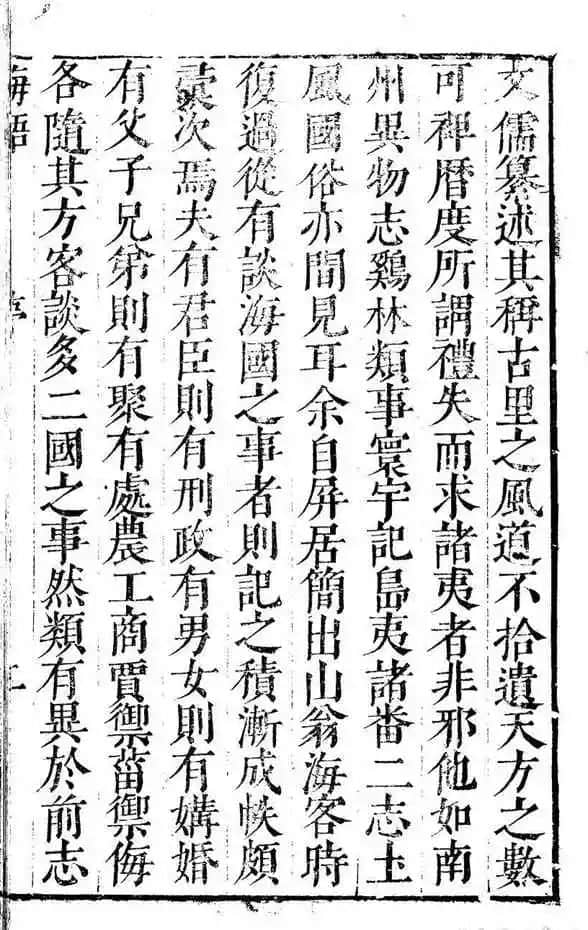 文儒纂述其稱古里之風道不拾遺天方之數
可裨曆度所謂禮失而求諸夷者非邪他如南
州異物志雞林類事寰宇記島夷諸番二志土
風國俗亦間見耳余自屏居簡出山翁海客時
復過從有談海國之事者則記之積漸成帙頗
彚次焉夫有君臣則有刑政有男女則有媾婚
有父子兄弟則有聚有處農工商賈禦菑禦侮
各隨其方客談多二國之事然類有異於前志
海語 序 二